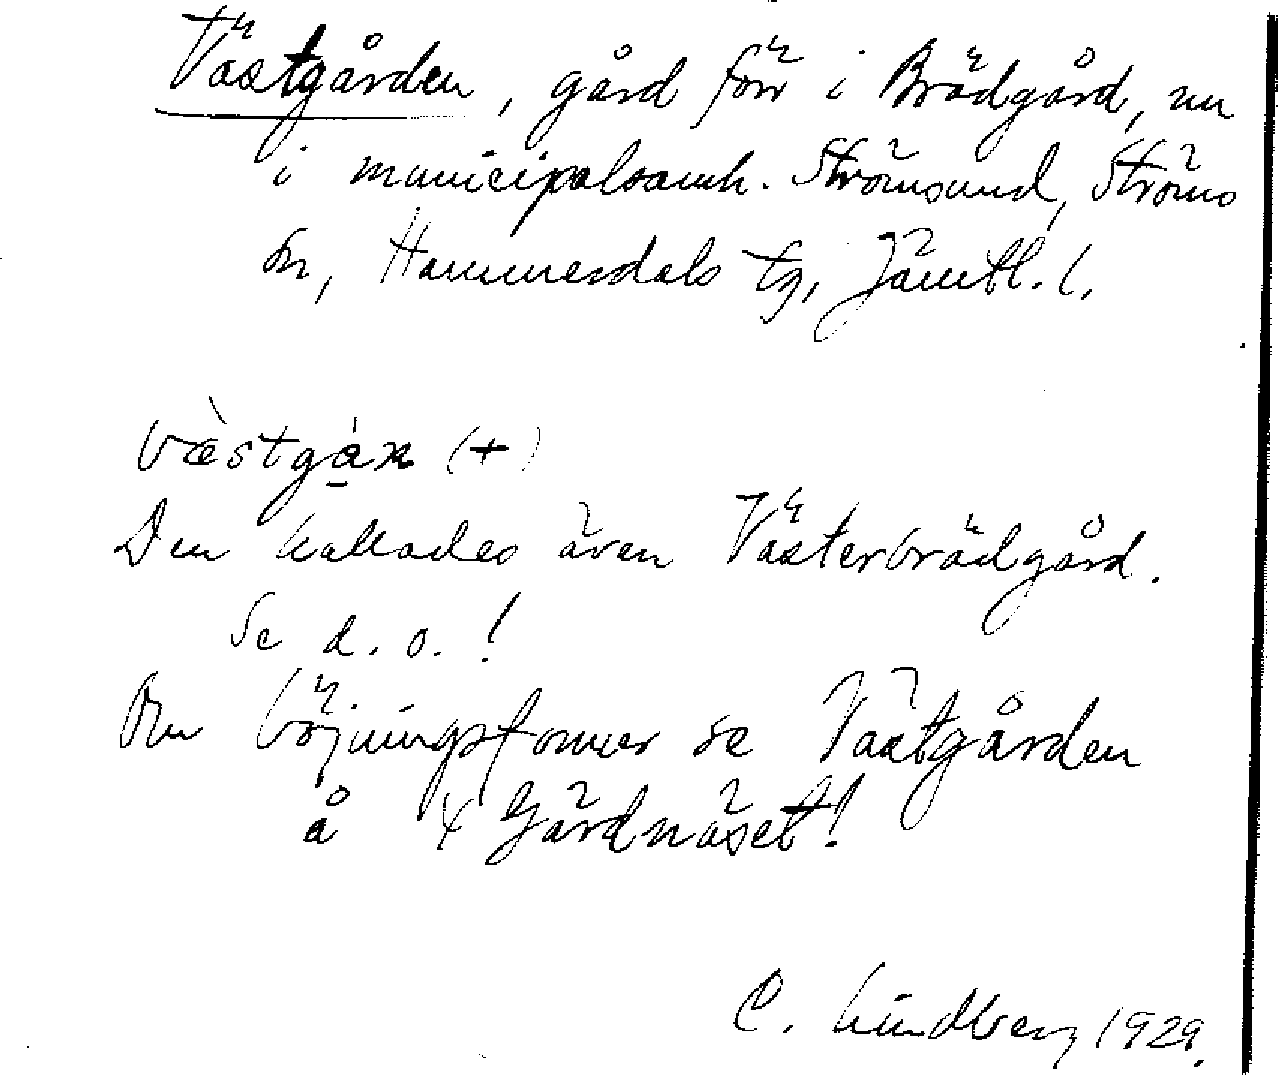 Västgården, gård förr i Brädgård, nu
i municipalsamh. Strömsund, Ströms
sn, Hammerdals tg, Jämtl. l.
væ̀stgạ̊̀n (+)
Den kallades även Västerbrädgård.
Se d. o. !
Om böjningsformer se Västgården
å × Gärdnäset!
C. Lindberg 1929.